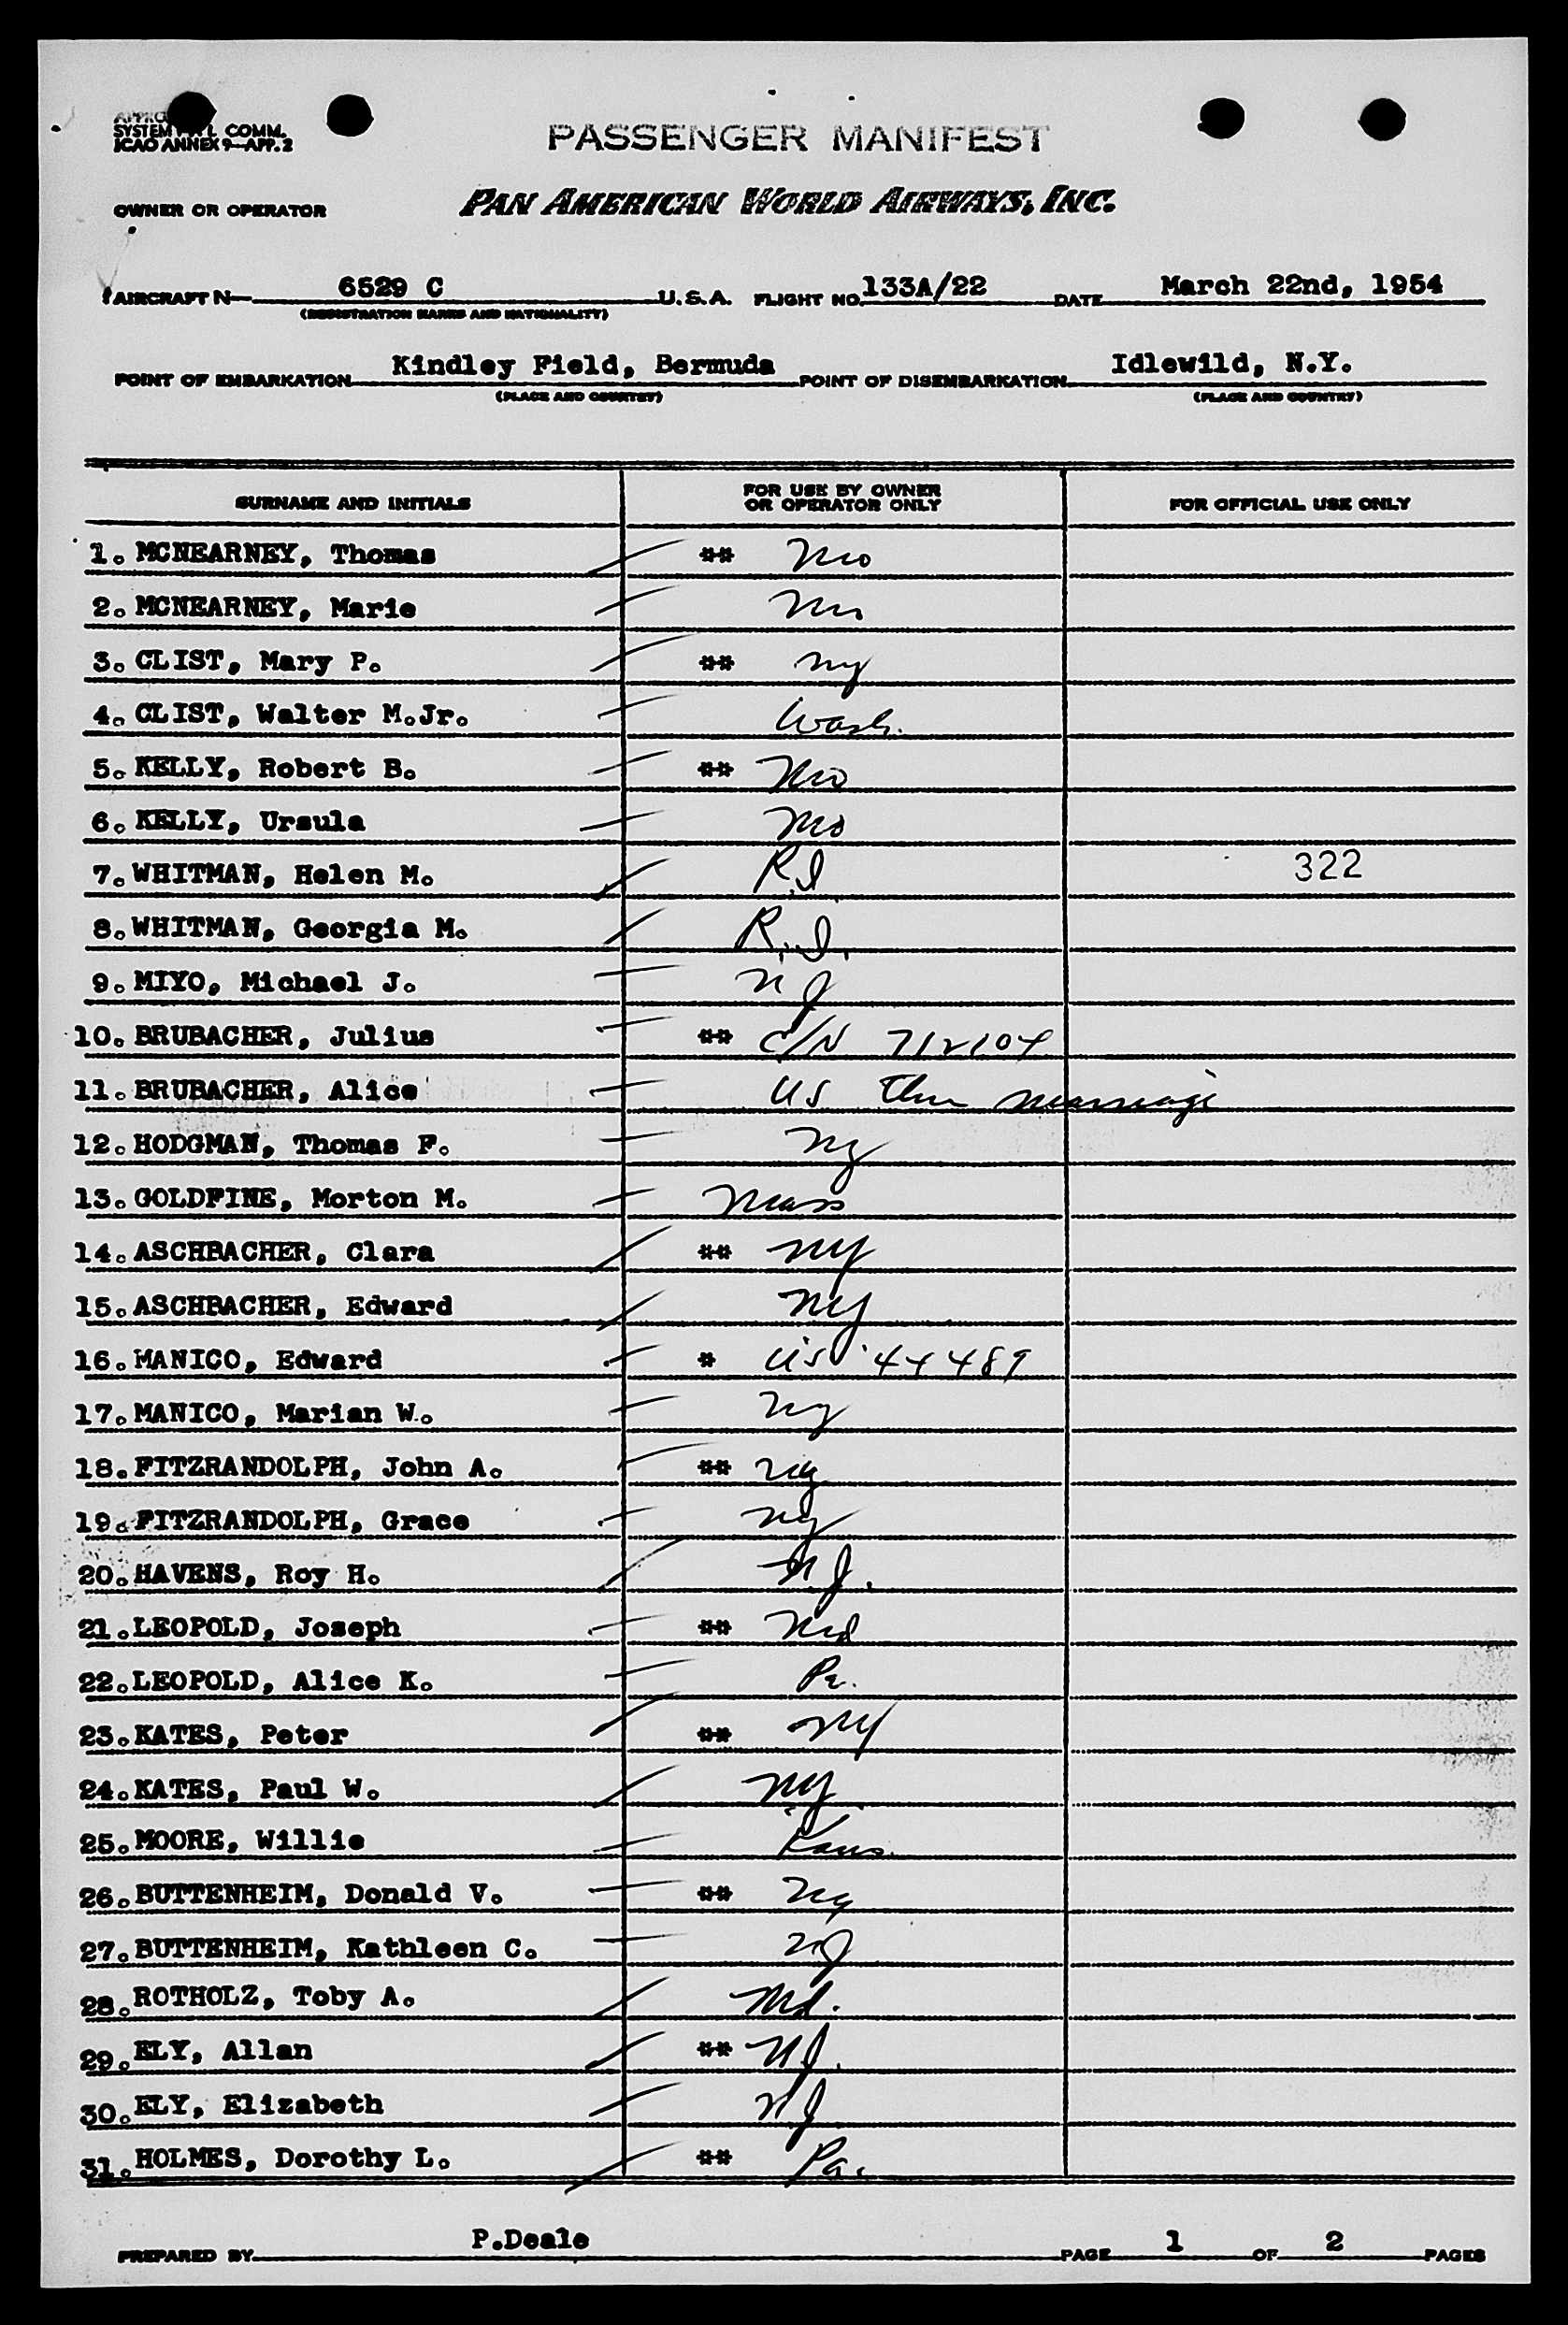 SYSTEM COMM.
ICAO ANNEX 9—APP. 2
PASSENGER MANIFEST
OWNER OR OPERATOR PAN AMERICAN WORLD AIRWAYS, INC.
AIRCRAFT N— 6529 C U.S.A. FLIGHT NO. 133A/22 DATE March 22nd, 1954
(REGISTRATION MARKS AND NATIONALITY)
POINT OF EMBARKATION Kindley Field, Bermuda POINT OF DISEMBARKATION Idlewild, N.Y.
(PLACE AND COUNTRY) (PLACE AND COUNTRY)
SURNAME AND INITIALS FOR USE BY OWNER OR OPERATOR ONLY FOR OFFICIAL USE ONLY
1. MCNEARNEY, Thomas ** Mo
2. MCNEARNEY, Marie
3. CLIST, Mary P. ** NY
4. CLIST, Walter M.Jr. Wash.
5. KELLY, Robert B. ** Mo
6. KELLY, Ursula Mo
7. WHITMAN, Helen M. R.I. 322
8. WHITMAN, Georgia M. R.I.
9. MIYO, Michael J. NJ
10. BRUBACHER, Julius ** C/N 712104
11. BRUBACHER, Alice US Thru marriage
12. HODGMAN, Thomas F. NY
13. GOLDFINE, Morton M. Mass
14. ASCHBACHER, Clara ** NY
15. ASCHBACHER, Edward NY
16. MANICO, Edward * 44489
17. MANICO, Marian W. NY
18. FITZRANDOLPH, John A. ** NY
19. FITZRANDOLPH, Grace NY
20. HAVENS, Roy H. N.J.
21. LEOPOLD, Joseph ** Md
22. LEOPOLD, Alice K. Pa.
23. KATES, Peter ** NY
24. KATES, Paul W. NY
25. MOORE, Willie Kans.
26. BUTTENHEIM, Donald V. ** NY
27. BUTTENHEIM, Kathleen C. NJ
28. ROTHOLZ, Toby A. Md.
29. ELY, Allan ** NJ.
30. ELY, Elizabeth NJ
31. HOLMES, Dorothy L. ** Pa.
PREPARED BY P.Deale PAGE 1 OF 2 PAGES